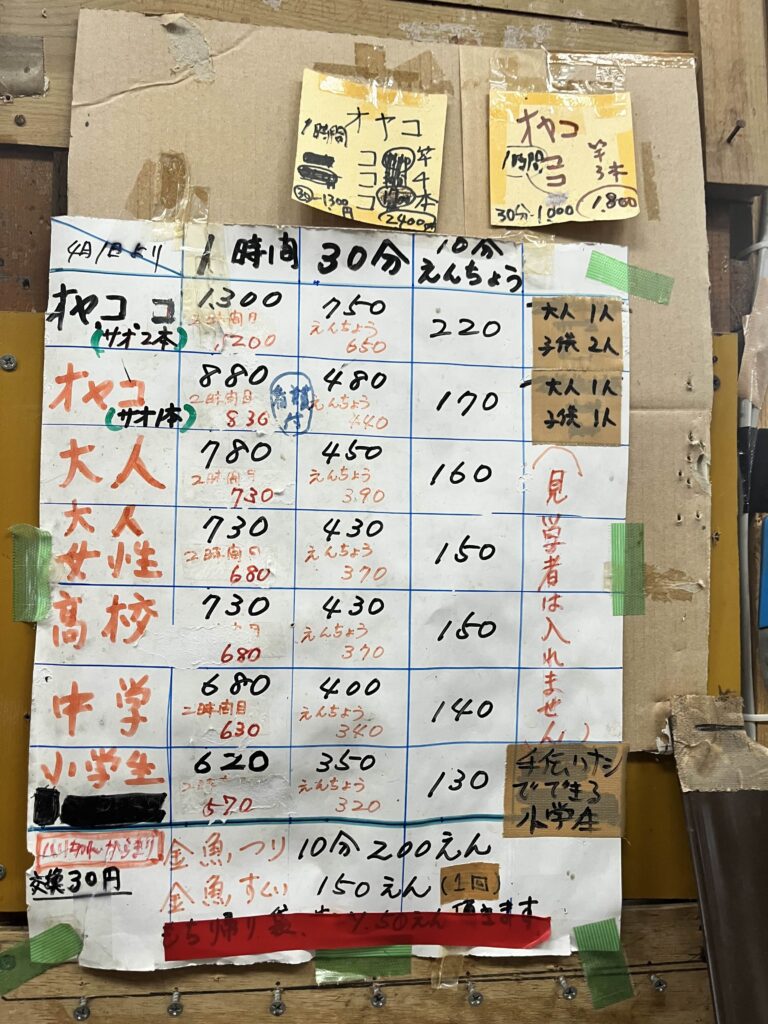 オヤコ
1時間
コ 竿
コ 4
コ 本
30-1300円
2400円
オヤコ
1時間 コ 竿
コ 3本
30分-1000 1,800
4月1日より 1時間 30分 10分えんちょう
オヤココ 1,300 750 220 大人 1人
(サオ2本) 2時間目 えんちょう 子供 2人
1,200 650
オヤコ 880 480 170 大人 1人
(サオ1本) 2時間目 えんちょう 子供 1人
830 440
大人 780 450 160
2時間目 えんちょう
730 390
大人 730 430 150
女性 2時間目 えんちょう
680 370
高校 730 430 150
えんちょう
680 370
中学 680 400 140
二時間目 えんちょう
630 340
小学生 620 350 130
えんちょう
570 320
(見学者は入れません)
手伝いなし
でできる
小学生
金魚つり 10分 200えん
交換30円
金魚すくい 150えん (1回)
もち帰り袋 50えん 頂きます